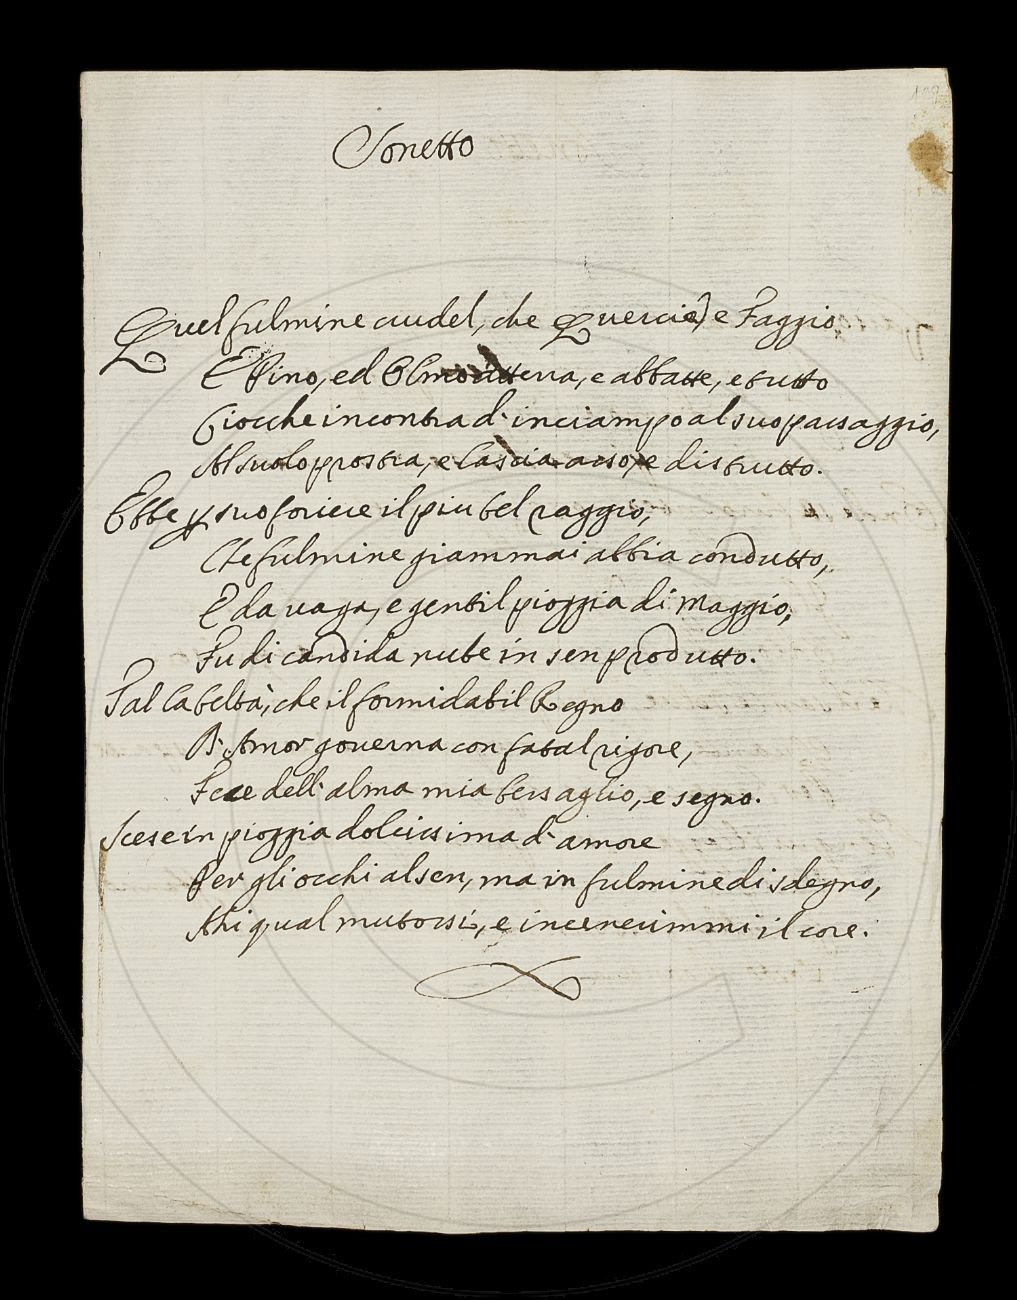 Sonetto
Quel fulmine crudel, che Quercie, e Faggio,
E Pino, ed Olmo atterra, e abbatte, e tutto
Ciocche incontra d'inciampo al suo passaggio,
Al suolo prostra, e lascia arso, e distrutto.
Ebbe p suo foriere il piu bel raggio,
Che fulmine giammai abbia condutto,
E da vaga, e gentil pioggia di Maggio,
Fu di candida nube in sen produtto.
Tal la beltà, che il formidabil Regno
D'Amor governa con fatal rigore,
Fece dell'alma mia bersaglio, e segno.
Scese in pioggia dolcissima d'amore
Per gli occhi al sen, ma in fulmine di sdegno,
Ahi qual mutossi, e incenerimmi il core.